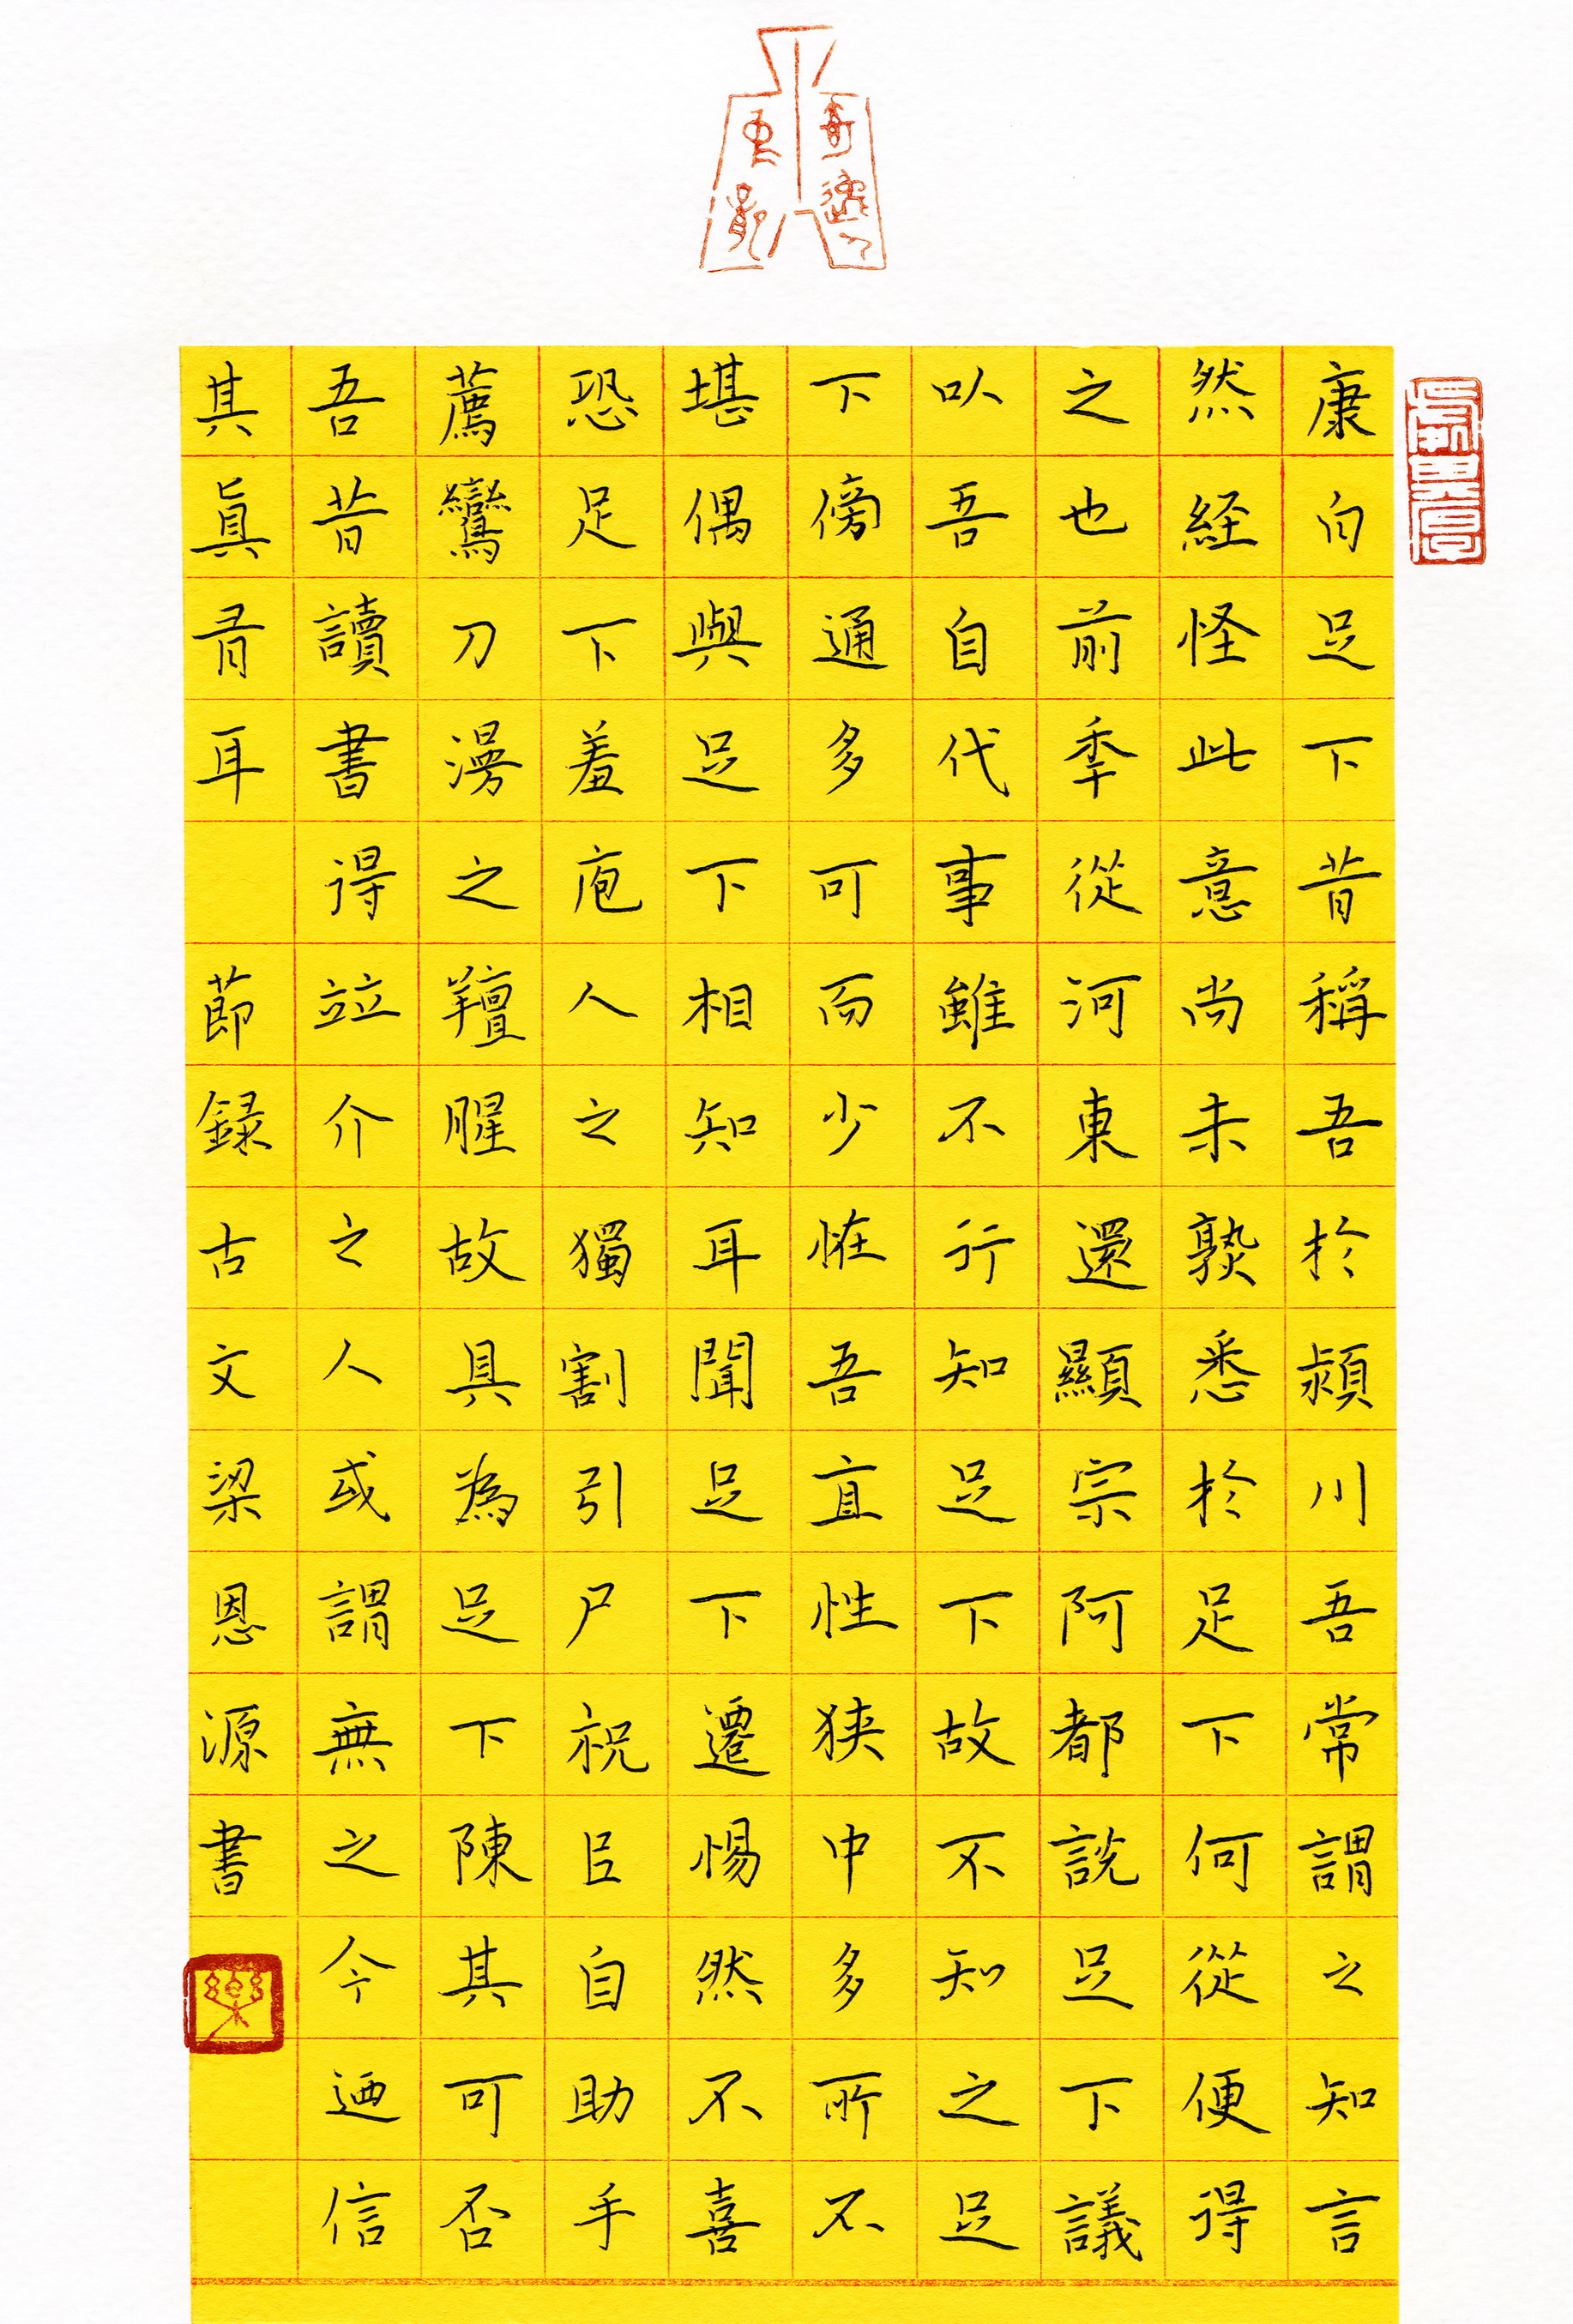 康白足下昔稱吾於潁川吾常謂之知言
然経怪此意尚未熟悉於足下何從便得
之也前季從河東還顯宗阿都説足下議
以吾自代事雖不行知足下故不知之足
下傍通多可而少恠吾直性狭中多所不
堪偶與足下相知耳聞足下遷惕然不喜
恐足下羞庖人之獨割引尸祝臣自助手
薦鸞刀漫之羶腥故具為足下陳其可否
吾昔讀書得竝介之人或謂無之今迺信
其眞有耳
節録古文梁恩源書